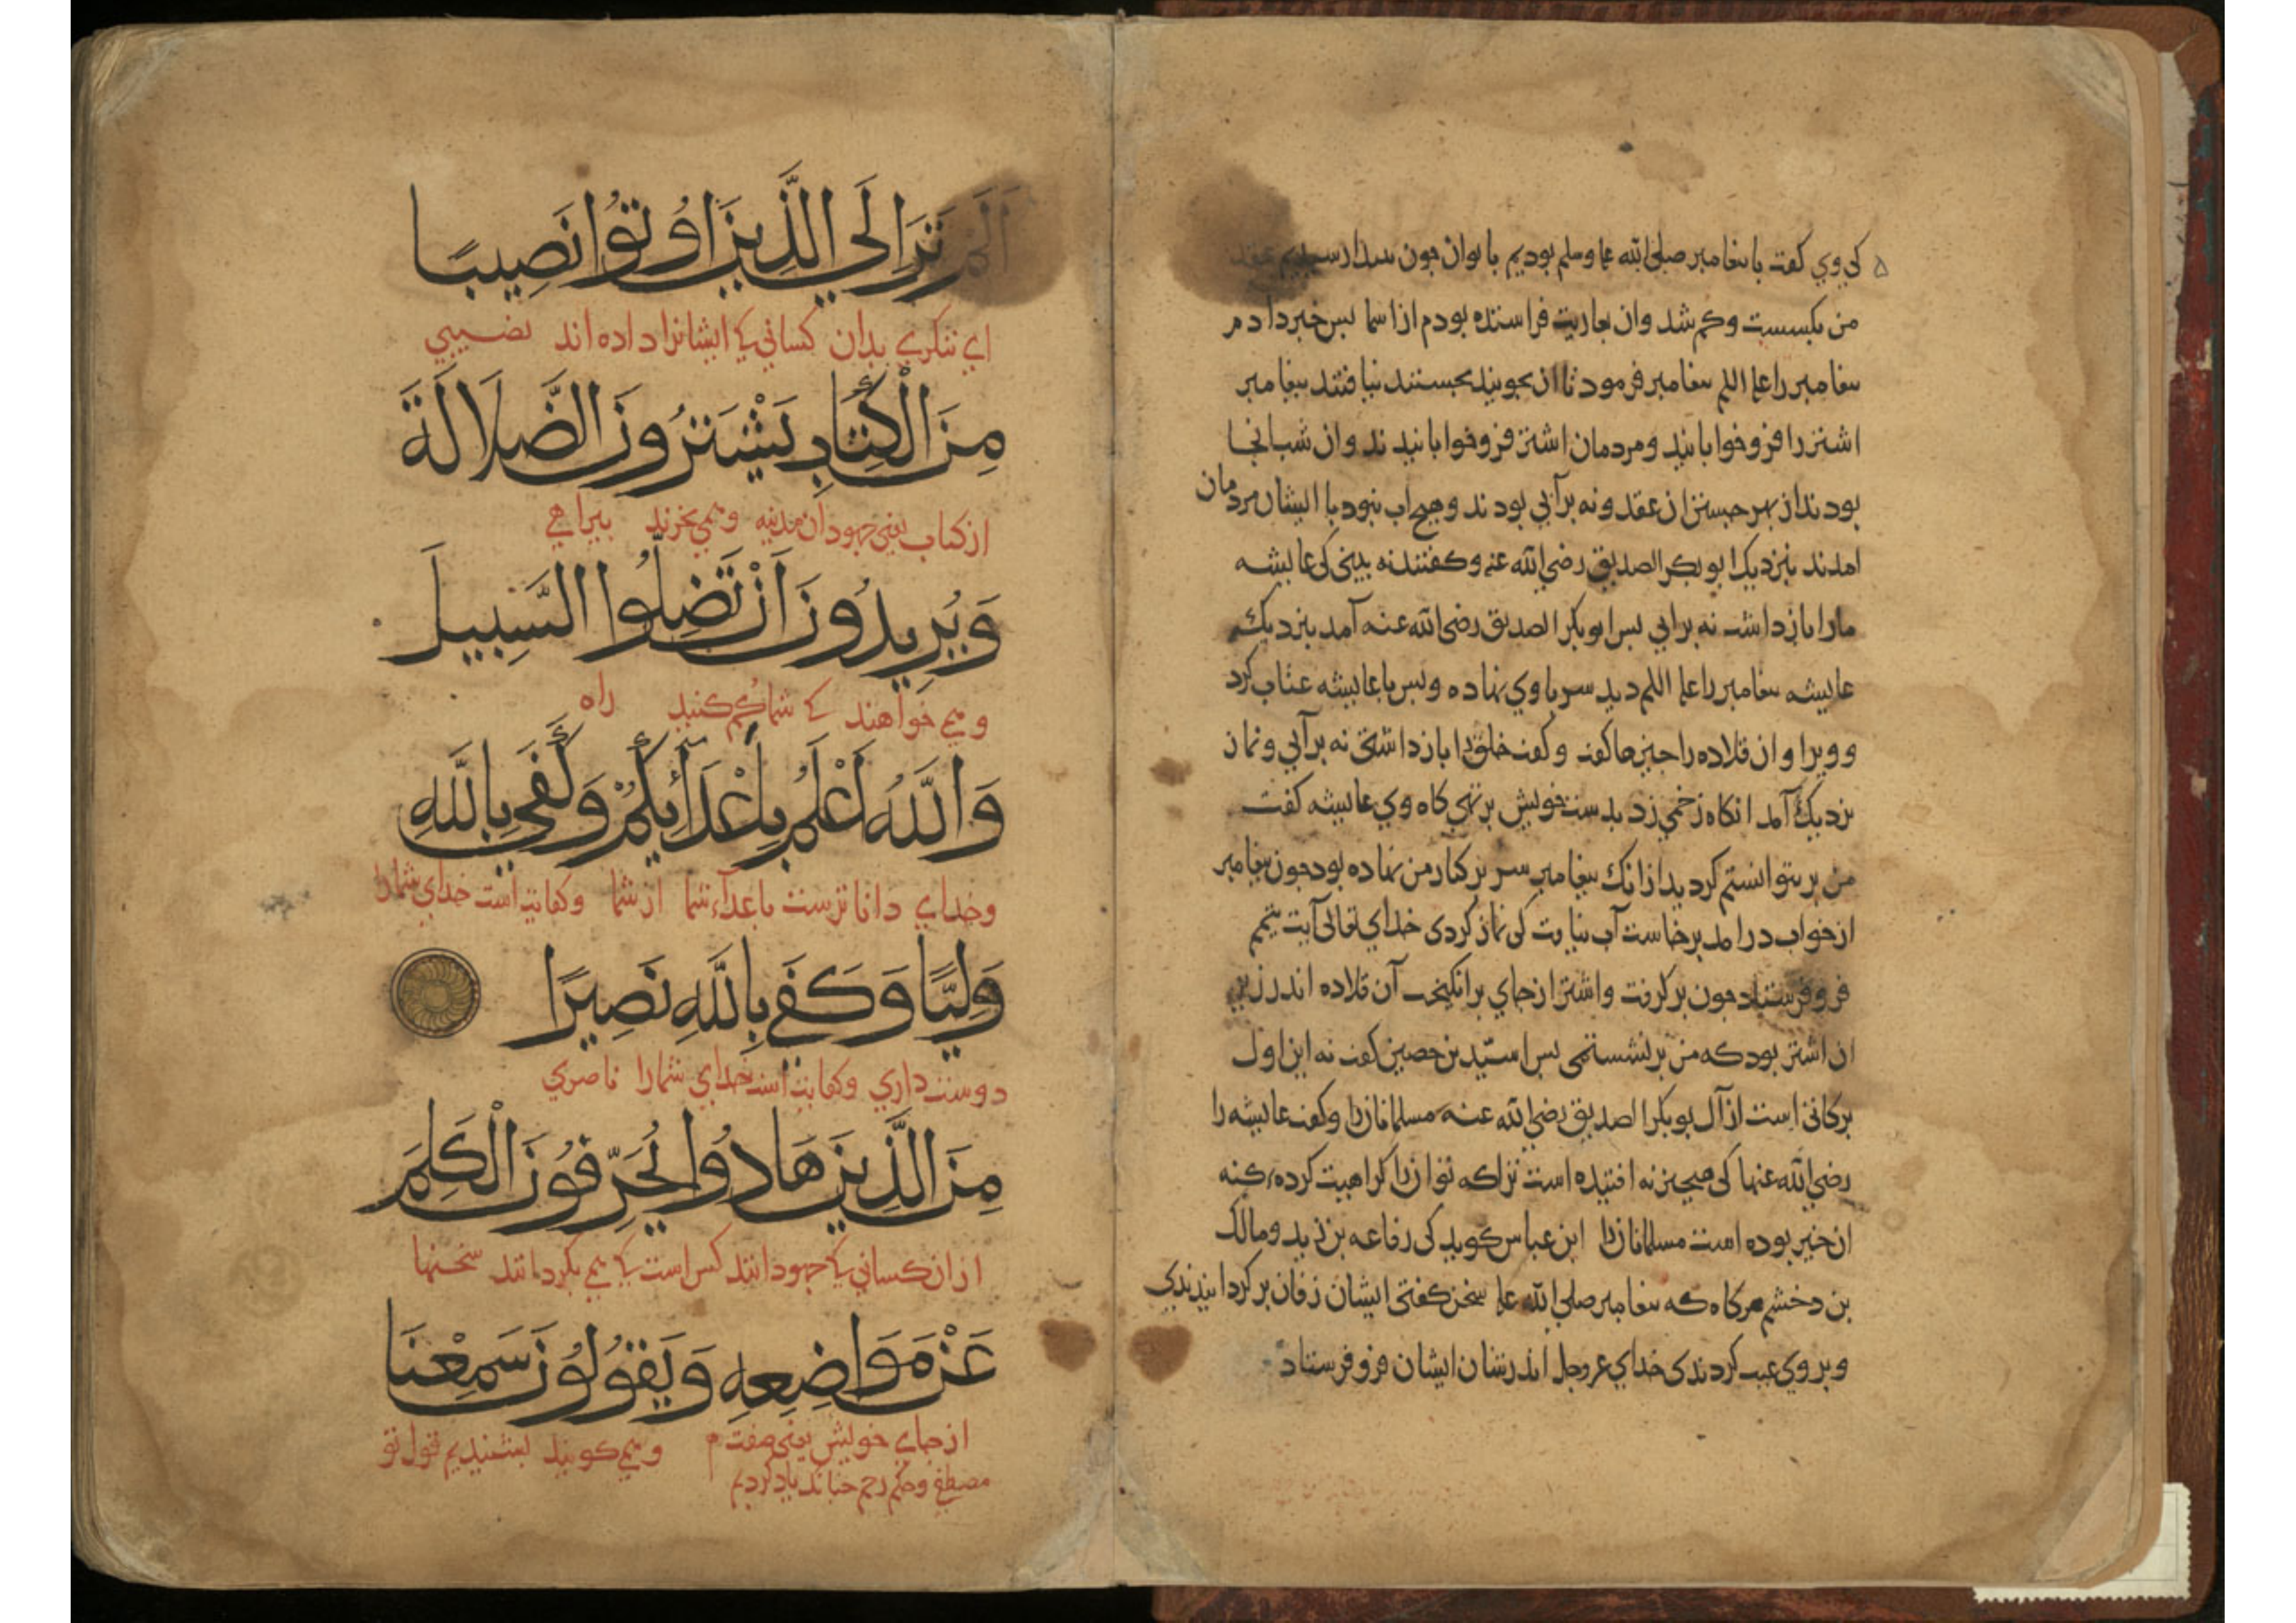 کی وی کفت با بیغامبر صلی الله علیه وسلم بودیم با بوان جون بیدا رسیدیم عقد
من بکسست و کم شد وان بعاریت فرا ستده بودم از اسما بس خبر دادم
بیغامبر را علیه السلم بیغامبر فرمود تا ان بجویند بجستند نیافتند بیغامبر
اشتر را فرو خوابانید و مردمان اشتر فرو خوابانیدند وان شب انجا
بودند از بهر جستن ان عقد و نه بر آبی بودند وهیج اب نبود با ایشان مردمان
امدند بنزدیک ابو بکر الصدیق رضی الله عنه و کفتند نه بینی کی عایشه
مارا باز داشت نه بر ابی بس ابو بکر الصدیق رضی الله عنه آمد بنزدیک
عایشه بیغامبر را علیه السلم دید سر باوی نهاده و بس با عایشه عتاب کرد
و ویرا وان قلاده را جیزها کفت و کفت خلق را باز داشتی نه بر آبی و نماز
نزدیک آمد انکاه زخمی زد بدست خویش بر تهی کاه وی عایشه کفت
من بر نتوانستم کردید از انک بیغامبر سر بر کنار من نهاده بود جون بیغامبر
از خواب در امد برخاست آب نیافت کی نماز کردی خدای تعالی آیت تیمم
فرو فرستاد جون بر کرفت و اشتر از جای برانکیخت آن قلاده اندر زیر
ان اشتر بود که من بر نشستمی بس اسید بن حصین کفت نه این اول
برکاتی است از آل بو بکر الصدیق رضی الله عنه مسلمانانرا و کفت عایشه را
رضی الله عنها کی هیجیز نه افتیده است ترا که تو ازرا کراهیت کرده، کنه
ان خیر بوده است مسلمانانرا ابن عباس کوید کی رفاعه بن زید و مالک
بن دخشم هرکاه که بیغامبر صلی الله علیه سخن کفتی ایشان زفان بر کردانیدندی
و بر وی عیب کردندی خدای عزوجل اندر شان ایشان فرو فرستاد
اَلَمْ تَرَ اِلَی الَّذِینَ اُوتُوا نَصِیبًا
ای ننکری بدان کسانی کی ایشانرا داده اند نصیبی
مِنَ الْکِتَابِ یَشْتَرُونَ الضَّلَالَةَ
از کتاب یعنی جهودان مدینه و همی خرند بیراهی
وَیُرِیدُونَ اَنْ تَضِلُّوا السَّبِیلَ
و همی خواهند کی شما کم کنید راه
وَاللَّهُ اَعْلَمُ بِاَعْدَائِکُمْ وَکَفَی بِاللَّهِ
و خدای داناترست باعداء شما از شما و کفایت است خدای شمارا
وَلِیًّا وَکَفَی بِاللَّهِ نَصِیرًا
دوست داری و کفایت است خدای شمارا ناصری
مِنَ الَّذِینَ هَادُوا یُحَرِّفُونَ الْکَلِمَ
از ان کسانی کی جهودانند کس است کی همی بکردانند سخنها
عَنْ مَوَاضِعِهِ وَیَقُولُونَ سَمِعْنَا
از جای خویش یعنی صفت و همی کویند بشنیدیم قول تو
مصطفی و حکم رجم جنانک یاد کردیم